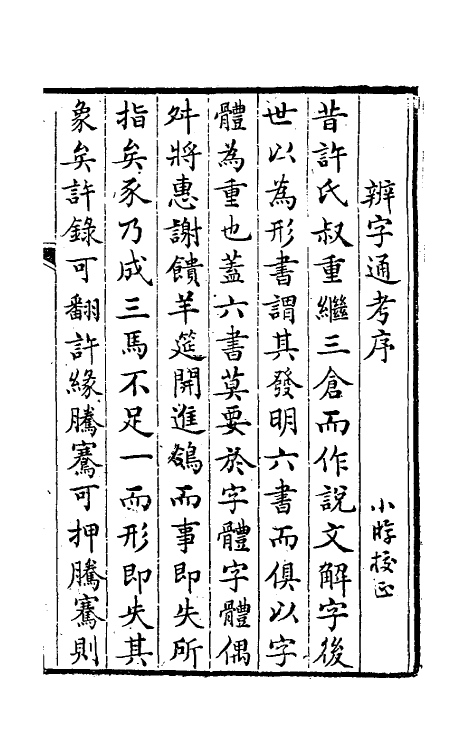 辨字通考序
小脖挍正
昔許氏叔重繼三倉而作説文解字後
世以為形書謂其發明六書而俱以字
體為重也蓋六書莫要於字體字體偶
舛將惠謝饋羊筵開進鵁而事即失所
指矣豕乃成三馬不足一而形即失其
象矣許錄可翻許緣騰騫可押騰騫則